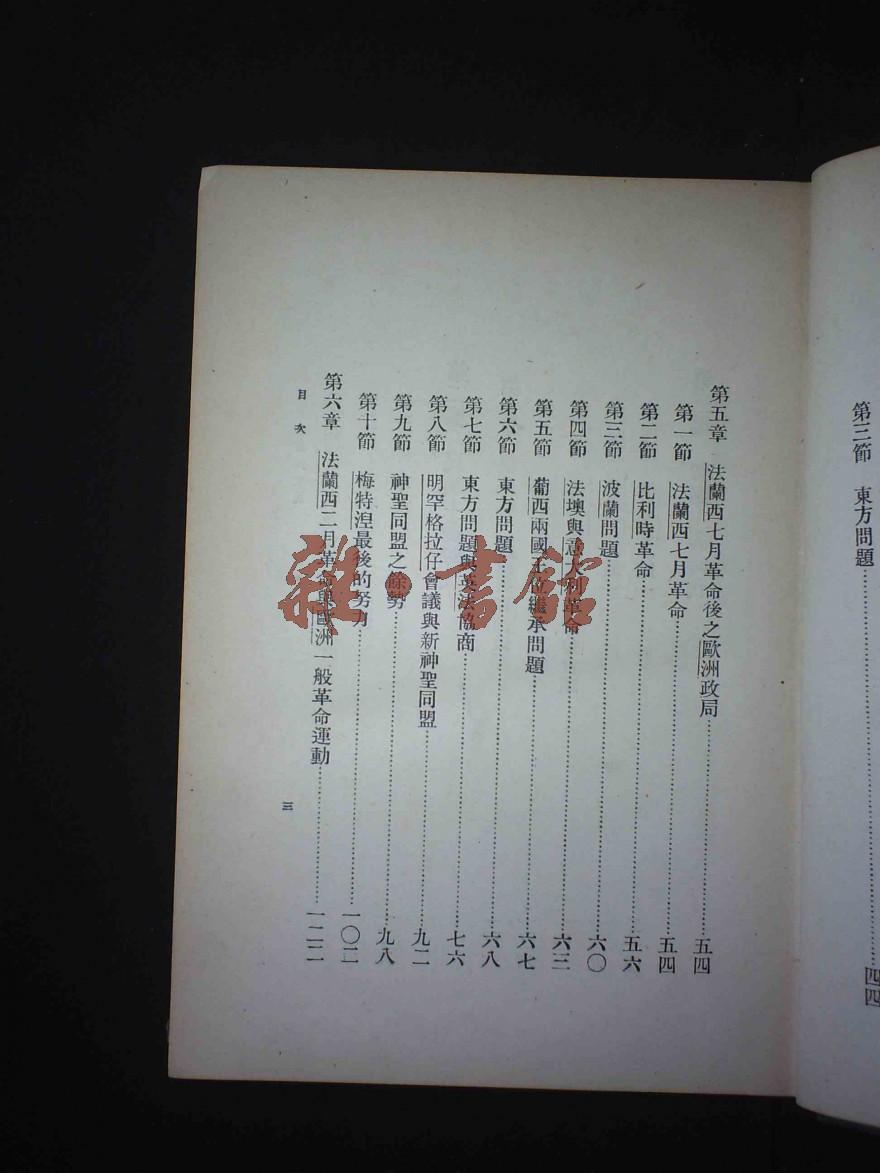 第三節　東方問題……四四
第五章　法蘭西七月革命後之歐洲政局……五四
第一節　法蘭西七月革命……五四
第二節　比利時革命……五六
第三節　波蘭問題……六〇
第四節　法墺與意大利革命……六三
第五節　葡西兩國王位繼承問題……六七
第六節　東方問題……六八
第七節　東方問題與英法協商……七六
第八節　明罕格拉仔會議與新神聖同盟……九二
第九節　神聖同盟之餘勢……九八
第十節　梅特涅最後的努力……一〇二
第六章　法蘭西二月革命與歐洲一般革命運動……一二二
目次
三
雜·書館